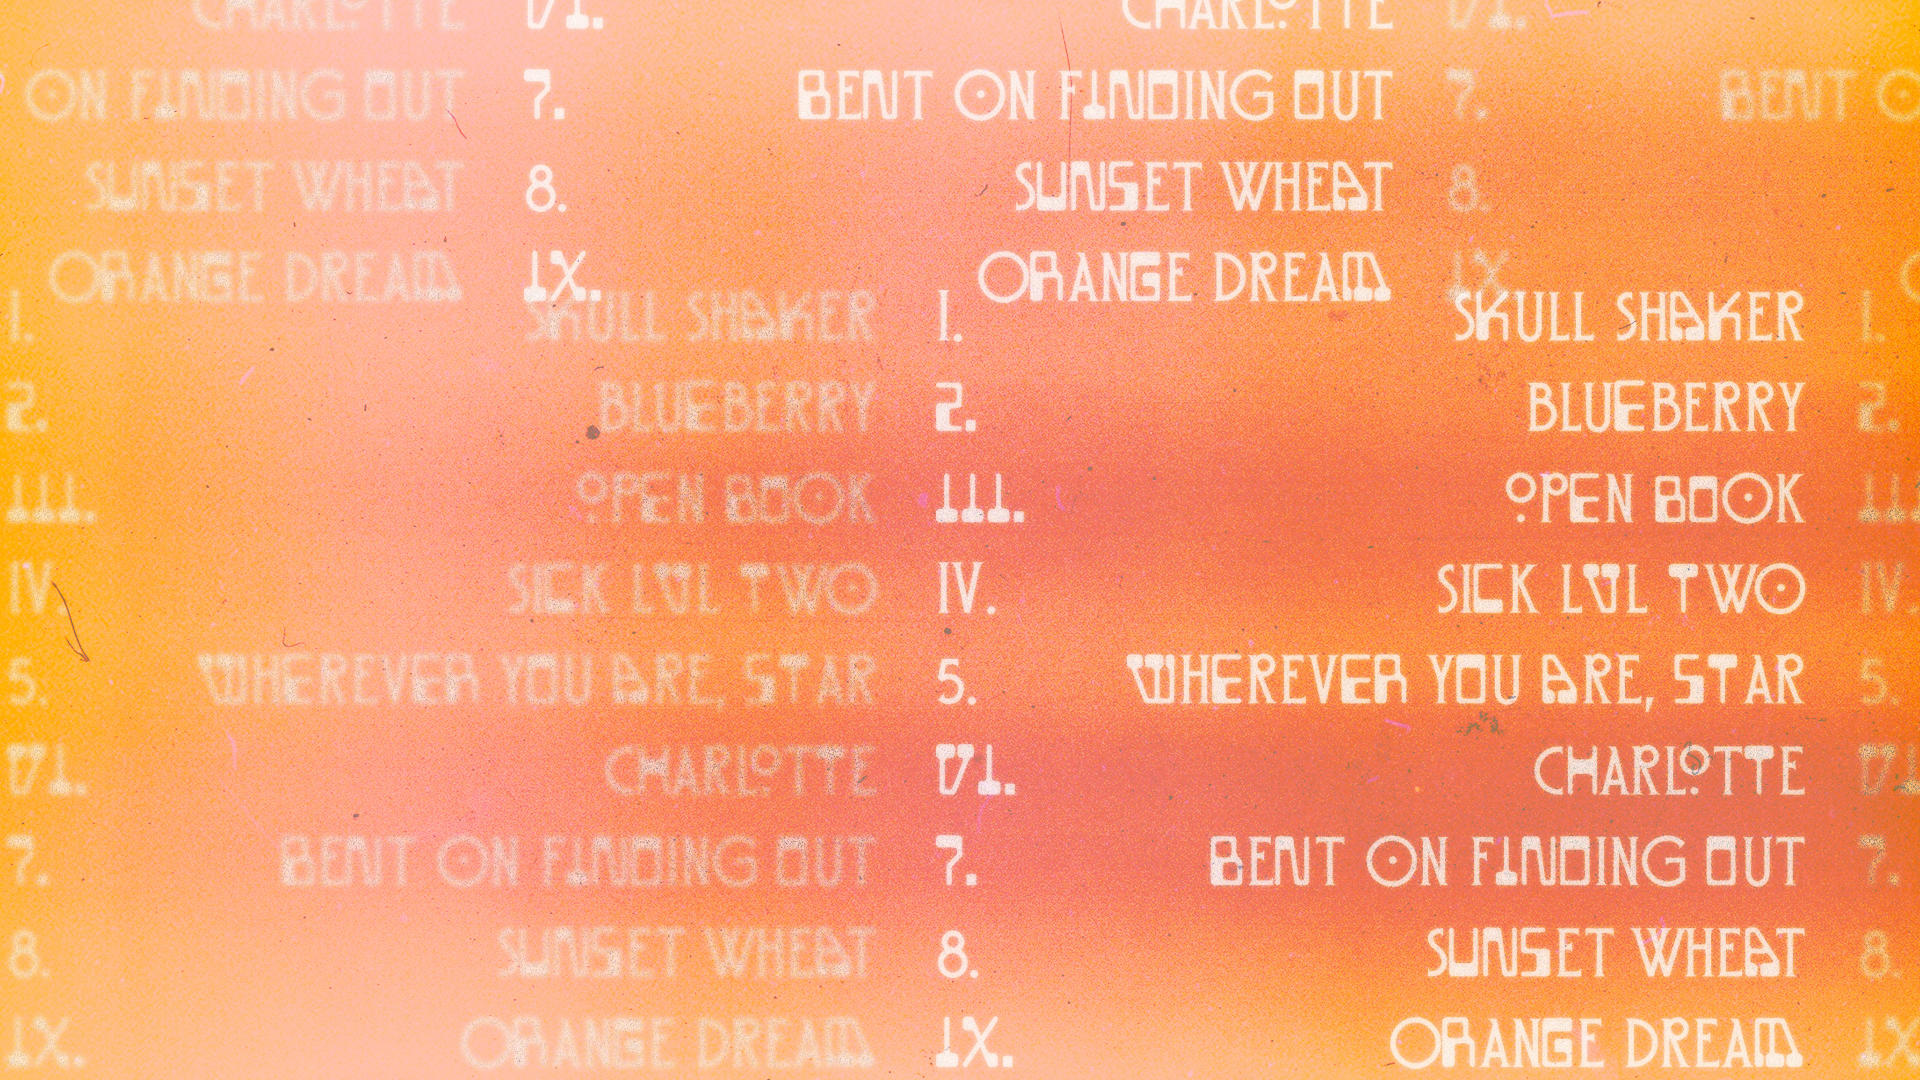 CHARLOTTE VI. CHARLOTTE VI.
ON FINDING OUT 7. BENT ON FINDING OUT 7. BENT O
SUNSET WHEAT 8. SUNSET WHEAT 8.
ORANGE DREAM IX. ORANGE DREAM IX. O
1. SKULL SHAKER 1. SKULL SHAKER 1.
2. BLUEBERRY 2. BLUEBERRY 2.
III. OPEN BOOK III. OPEN BOOK III
IV. SICK LUL TWO IV. SICK LUL TWO IV.
5. WHEREVER YOU ARE, STAR 5. WHEREVER YOU ARE, STAR 5.
VI. CHARLOTTE VI. CHARLOTTE VI
7. BENT ON FINDING OUT 7. BENT ON FINDING OUT 7.
8. SUNSET WHEAT 8. SUNSET WHEAT 8.
IX. ORANGE DREAM IX. ORANGE DREAM IX